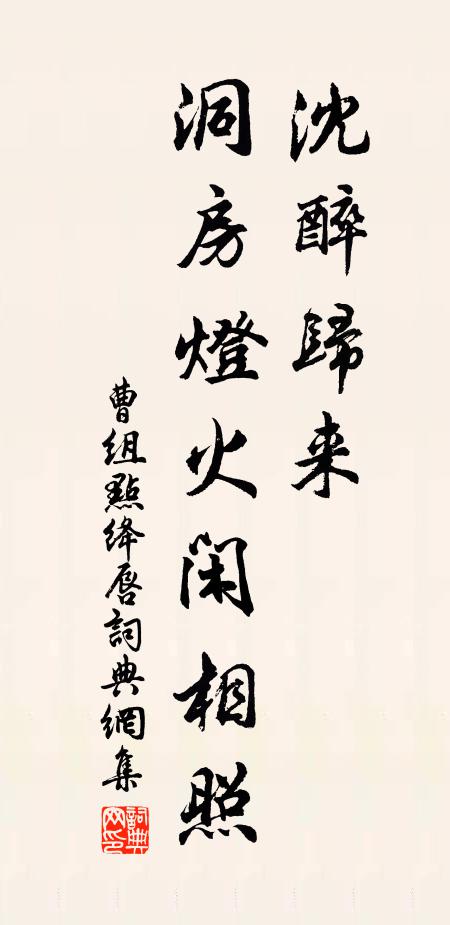 沈醉歸来
洞房燈火闲相照
曹组點绛唇詞典網集
詞典網印